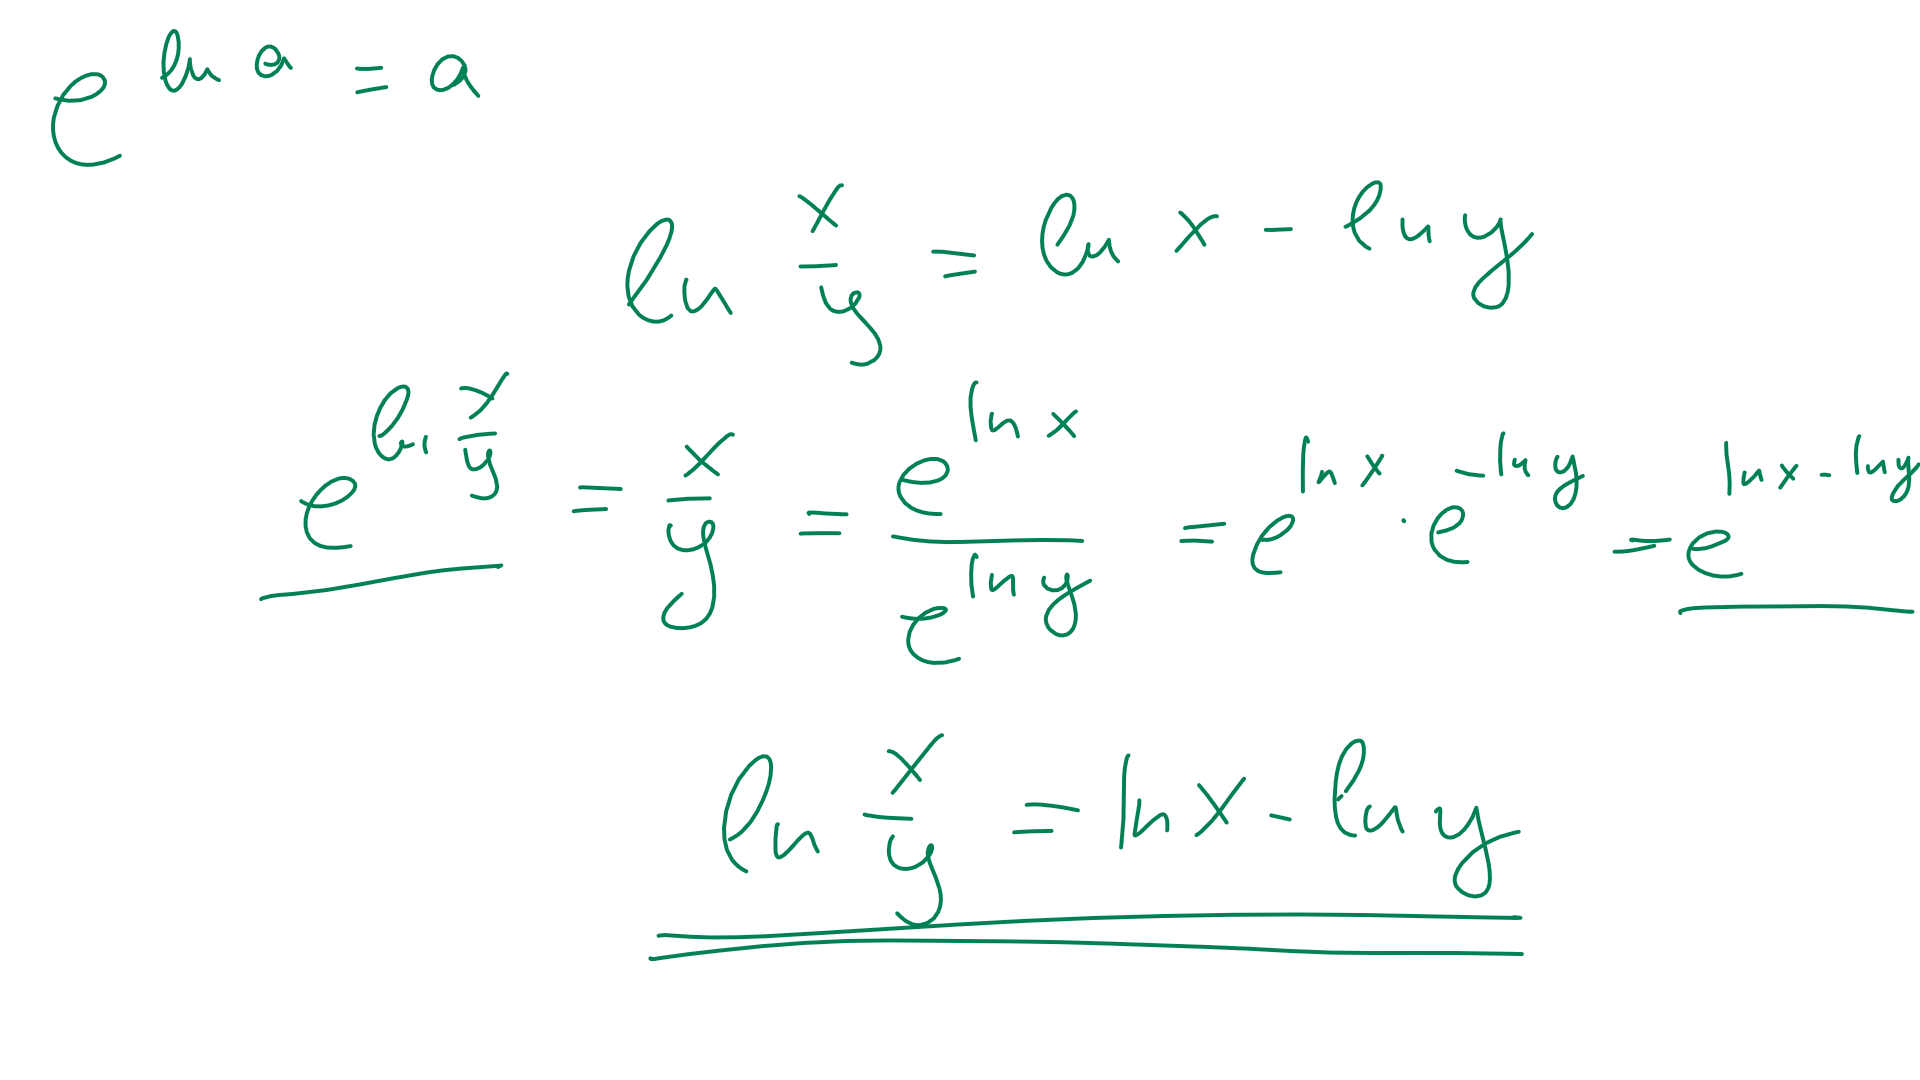 e^{ln a} = a
ln \frac{x}{y} = ln x - ln y
e^{ln \frac{x}{y}} = \frac{x}{y} = \frac{e^{ln x}}{e^{ln y}} = e^{ln x} · e^{-ln y} = e^{ln x - ln y}
ln \frac{x}{y} = ln x - ln y